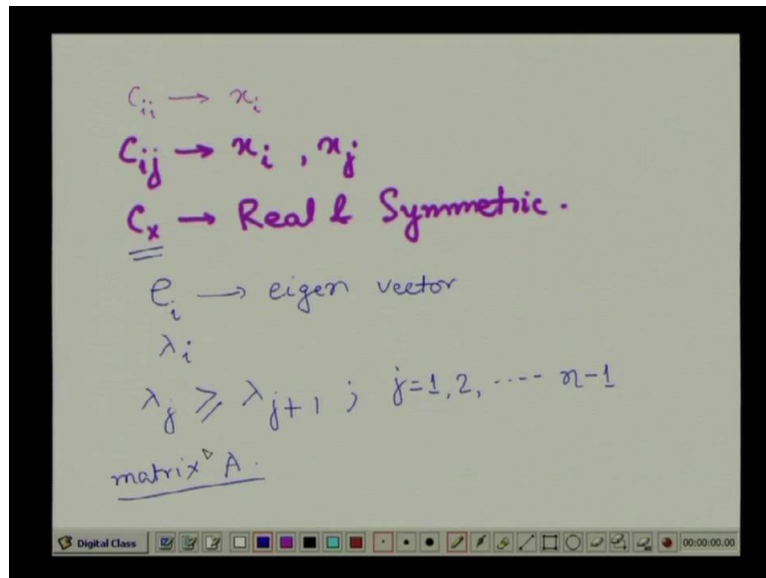 C_ii → x_i
C_ij → x_i , x_j
C_x → Real & Symmetric.
e_i → eigen vector
λ_i
λ_j ≥ λ_j+1 ; j=1,2, ---- n-1
matrix A.
Digital Class 00:00:00.00